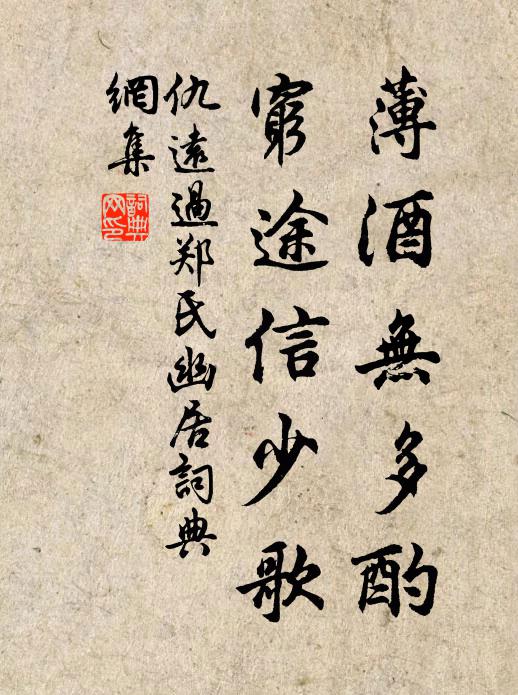 薄酒無多酌
窮途信少歌
仇遠過郑氏幽居詞典
網集
詞典網印